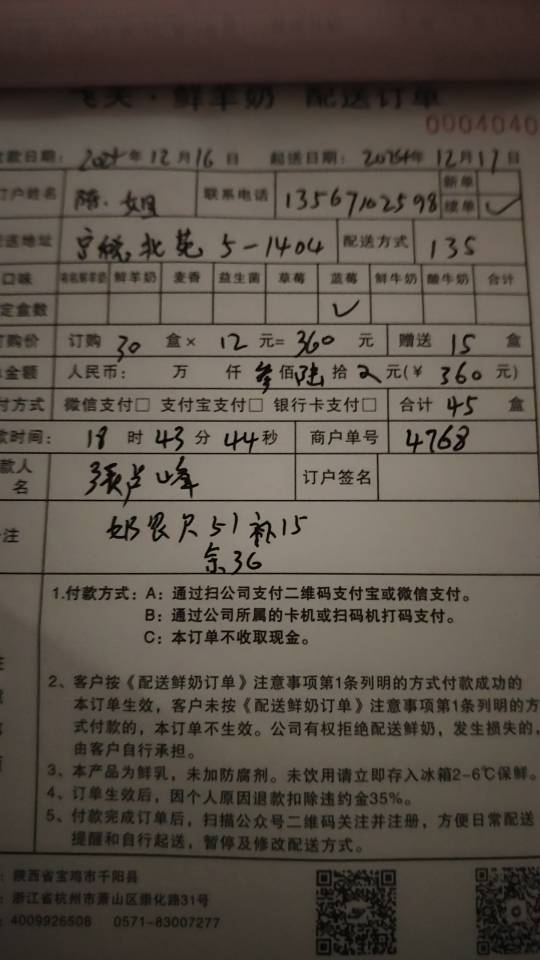 飞天·鲜羊奶 配送订单
0004040
款日期: 2024年12月16日 起送日期: 2024年12月17日
订户姓名 陈姐 联系电话 13567102598 新单
续单 ✓
送地址 北苑 5-1404 配送方式 135
口味 鲜羊奶 麦香 益生菌 草莓 蓝莓 鲜牛奶 酸牛奶 合计
定盒数 ✓
订购价 订购 30 盒× 12 元= 360 元 赠送 15 盒
金额 人民币: 万 仟 叁佰陆拾 元(¥ 360 元)
付方式 微信支付□ 支付宝支付□ 银行卡支付□ 合计 45 盒
款时间: 18 时 43 分 44秒 商户单号 4768
款人
名 張占峰 订户签名
注 奶 欠51补15
余36
1.付款方式:A:通过扫公司支付二维码支付宝或微信支付。
B:通过公司所属的卡机或扫码机打码支付。
C:本订单不收取现金。
2、客户按《配送鲜奶订单》注意事项第1条列明的方式付款成功的
本订单生效,客户未按《配送鲜奶订单》注意事项第1条列明的方
式付款的,本订单不生效。公司有权拒绝配送鲜奶,发生损失的,
由客户自行承担。
3、本产品为鲜乳,未加防腐剂。未饮用请立即存入冰箱2-6℃保鲜。
4、订单生效后,因个人原因退款扣除违约金35%。
5、付款完成订单后,扫描公众号二维码关注并注册,方便日常配送
提醒和自行起送,暂停及修改配送方式。
:陕西省宝鸡市千阳县
:浙江省杭州市萧山区崇化路31号
:4009926508 0571-83007277